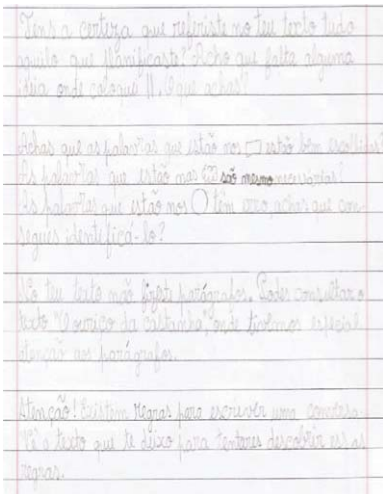 Tens a certeza que referiste no teu texto tudo
aquilo que planificaste? Acho que falta alguma
ideia onde coloquei //. O que achas?
Achas que as palavras que estão nos estão bem escolhidas?
As palavras que estão nas são mesmo necessárias?
As palavras que estão nos têm erro, achas que con-
segues identificá-lo?
No teu texto não fizeste parágrafos. Podes consultar o
texto "O ouriço da castanha", onde tivemos especial
atenção aos parágrafos.
Atenção! Existem regras para escrever uma conversa.
Lê o texto que te deixo para tentares descobrir essas
regras.